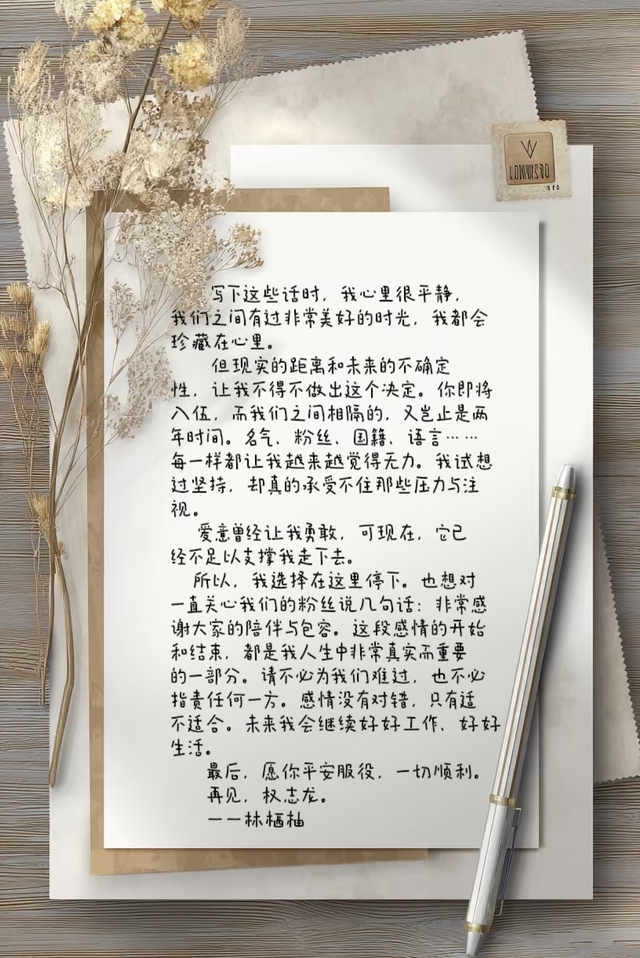 写下这些话时，我心里很平静，
我们之间有过非常美好的时光，我都会
珍藏在心里。
但现实的距离和未来的不确定
性，让我不得不做出这个决定。你即将
入伍，而我们之间相隔的，又岂止是两
年时间。名气、粉丝、国籍、语言……
每一样都让我越来越觉得无力。我试想
过坚持，却真的承受不住那些压力与注
视。
爱意曾经让我勇敢，可现在，它已
经不足以支撑我走下去。
所以，我选择在这里停下。也想对
一直关心我们的粉丝说几句话：非常感
谢大家的陪伴与包容。这段感情的开始
和结束，都是我人生中非常真实而重要
的一部分。请不必为我们难过，也不必
指责任何一方。感情没有对错，只有适
不适合。未来我会继续好好工作、好好
生活。
最后，愿你平安服役，一切顺利。
再见，权志龙。
——林栖柚